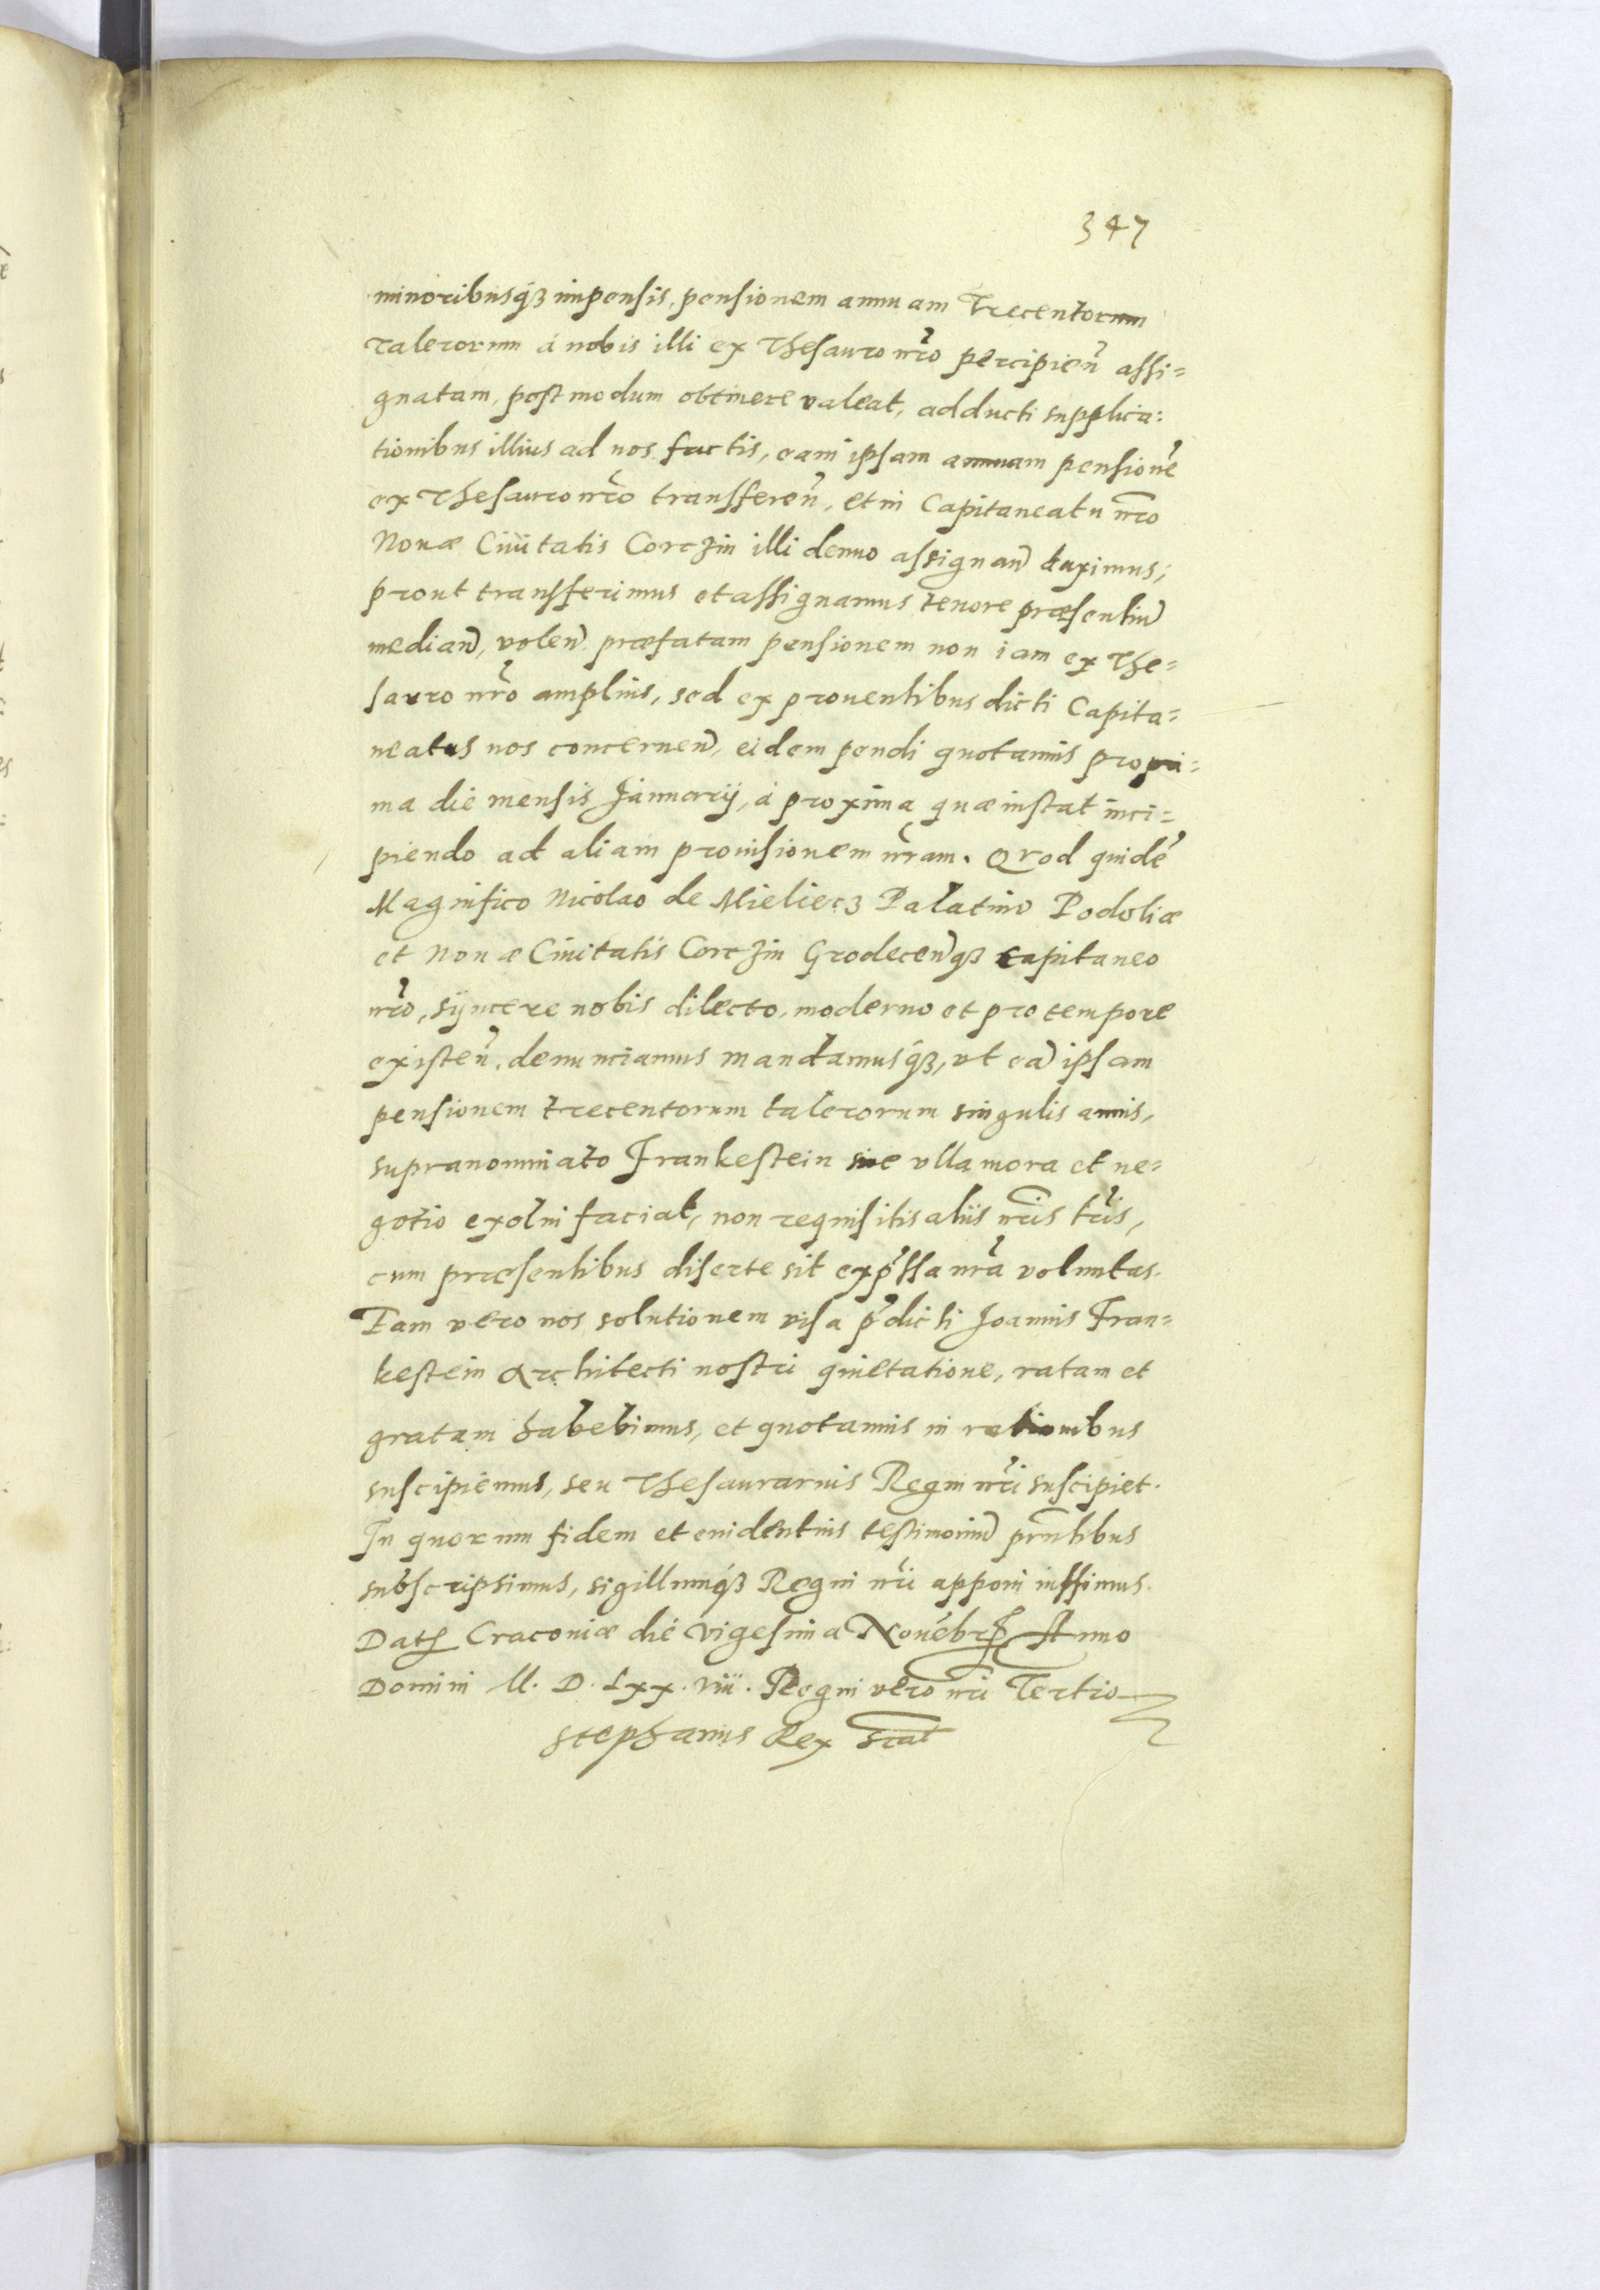 347
minoribusq3 impensis, pensionem annuam Trecentorum
Talerorum á nobis illi ex Thesauro nr̃o percipien̄ assi=
gnatam, postmodum obtinere valeat, adducti supplica:
tionibus illius ad nos factis, eam ipsam annuam pensionē
ex Thesauro nr̃o transferen̄, et in Capitaneatu nr̃o
Nouæ Ciuitatis Corczin illi denuo assignan̄ duximus;
prout transferimus et assignamus tenore præsentiū
median̄, volen̄ præfatam pensionem non iam ex The=
sauro nr̃o amplius, sed ex prouentibus dicti Capita=
neatus nos concernen̄, eidem pendi quotannis pro pri=
ma die mensis Januarij, á proxima quæ instat inci=
piendo ad aliam prouisionem nr̃am. Quod quidē
Magnifico Nicolao de Mieliecz Palatino Podoliæ
et Nouæ Ciuitatis Corczin Grodecen̄q3 capitaneo
nr̃o, syncere nobis dilecto, moderno et pro tempore
existen̄, denunciamus mandamusq3, vt eā ipsam
pensionem trecentorum talerorum singulis annis,
supranominato Frankestein sine vlla mora et ne=
gotio exolui faciat, non requisitis aliis nr̃is lr̃is,
cum præsentibus diserte sit expr̃ssa nr̃a voluntas.
Eam vero nos solutionem visa p̄dicti Joannis Fran=
kestein Architecti nostri quietatione, ratam et
gratam habebimus, et quotannis in rationibus
suscipiemus, seu Thesaurarius Regni nr̃i suscipiet.
In quorum fidem et euidentius testimoniū pr̃ntibus
subscripsimus, sigillumq3 Regni nr̃i apponi iussimus.
Datꝭ Cracouiæ die vigesima Nouēbrꝭ Anno
Domini M. D. Lxx. viii. Regni vero nr̃i Tertio
Stephanus Rex sc̃at